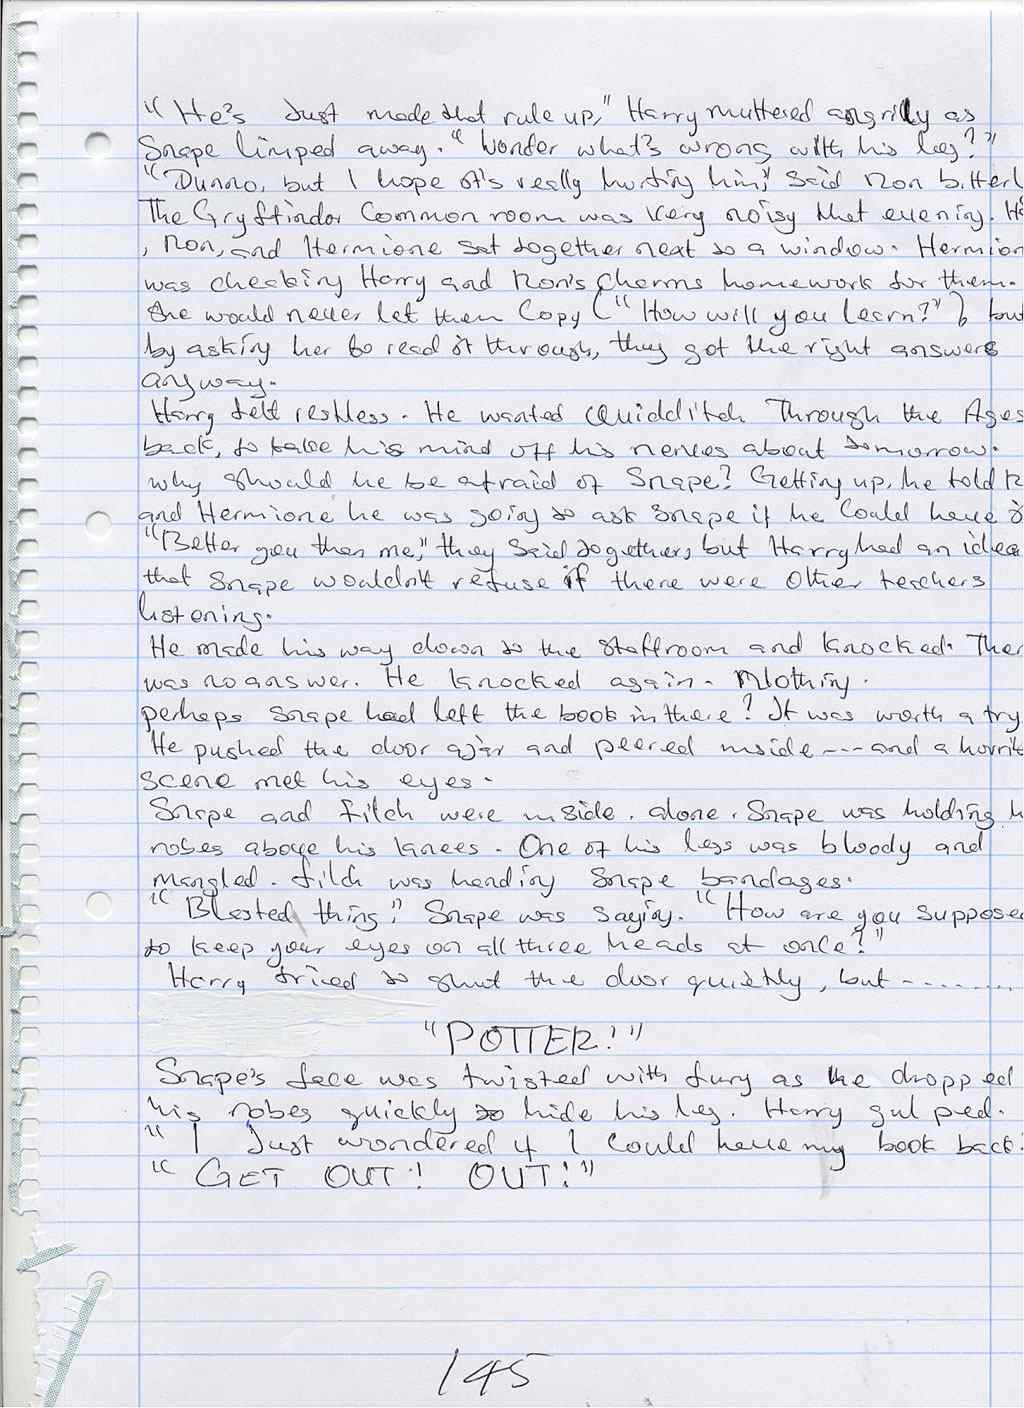 "He's Just made that rule up," Harry muttered angrily as
Snape limped away. "Wonder what's wrong with his leg?"
"Dunno, but I hope it's really hurting him," said Ron bitterl
The Gryffindor Common room was very noisy that evening. Ha
, Ron, and Hermione sat together next to a window. Hermion
was checking Harry and Ron's Charms homework for them.
She would never let them Copy ("How will you learn?"), but
by asking her to read it through, they got the right answers
anyway.
Harry felt restless. He wanted Quidditch Through the Ages
back, to take his mind off his nerves about tomorrow.
why should he be afraid of Snape? Getting up, he told R
and Hermione he was going to ask Snape if he Could have i
"Better you than me," they said together, but Harry had an idea
that Snape wouldn't refuse if there were Other teachers
listening.
He made his way down to the staffroom and knocked. Ther
was no answer. He knocked again. Nothing.
perhaps Snape had left the book in there? It was worth a try
He pushed the door ajar and peered inside --- and a horrib
scene met his eyes.
Snape and Filch were inside, alone. Snape was holding h
robes above his knees. One of his legs was bloody and
mangled. Filch was handing Snape bandages.
"Blasted thing", Snape was saying. "How are you suppose
to keep your eyes on all three heads at once?"
Harry tried to shut the door quietly, but --------
"POTTER!"
Snape's face was twisted with fury as he dropped
his robes quickly to hide his leg. Harry gulped.
"I Just wondered if I Could have my book back.
"GET OUT! OUT!"
145